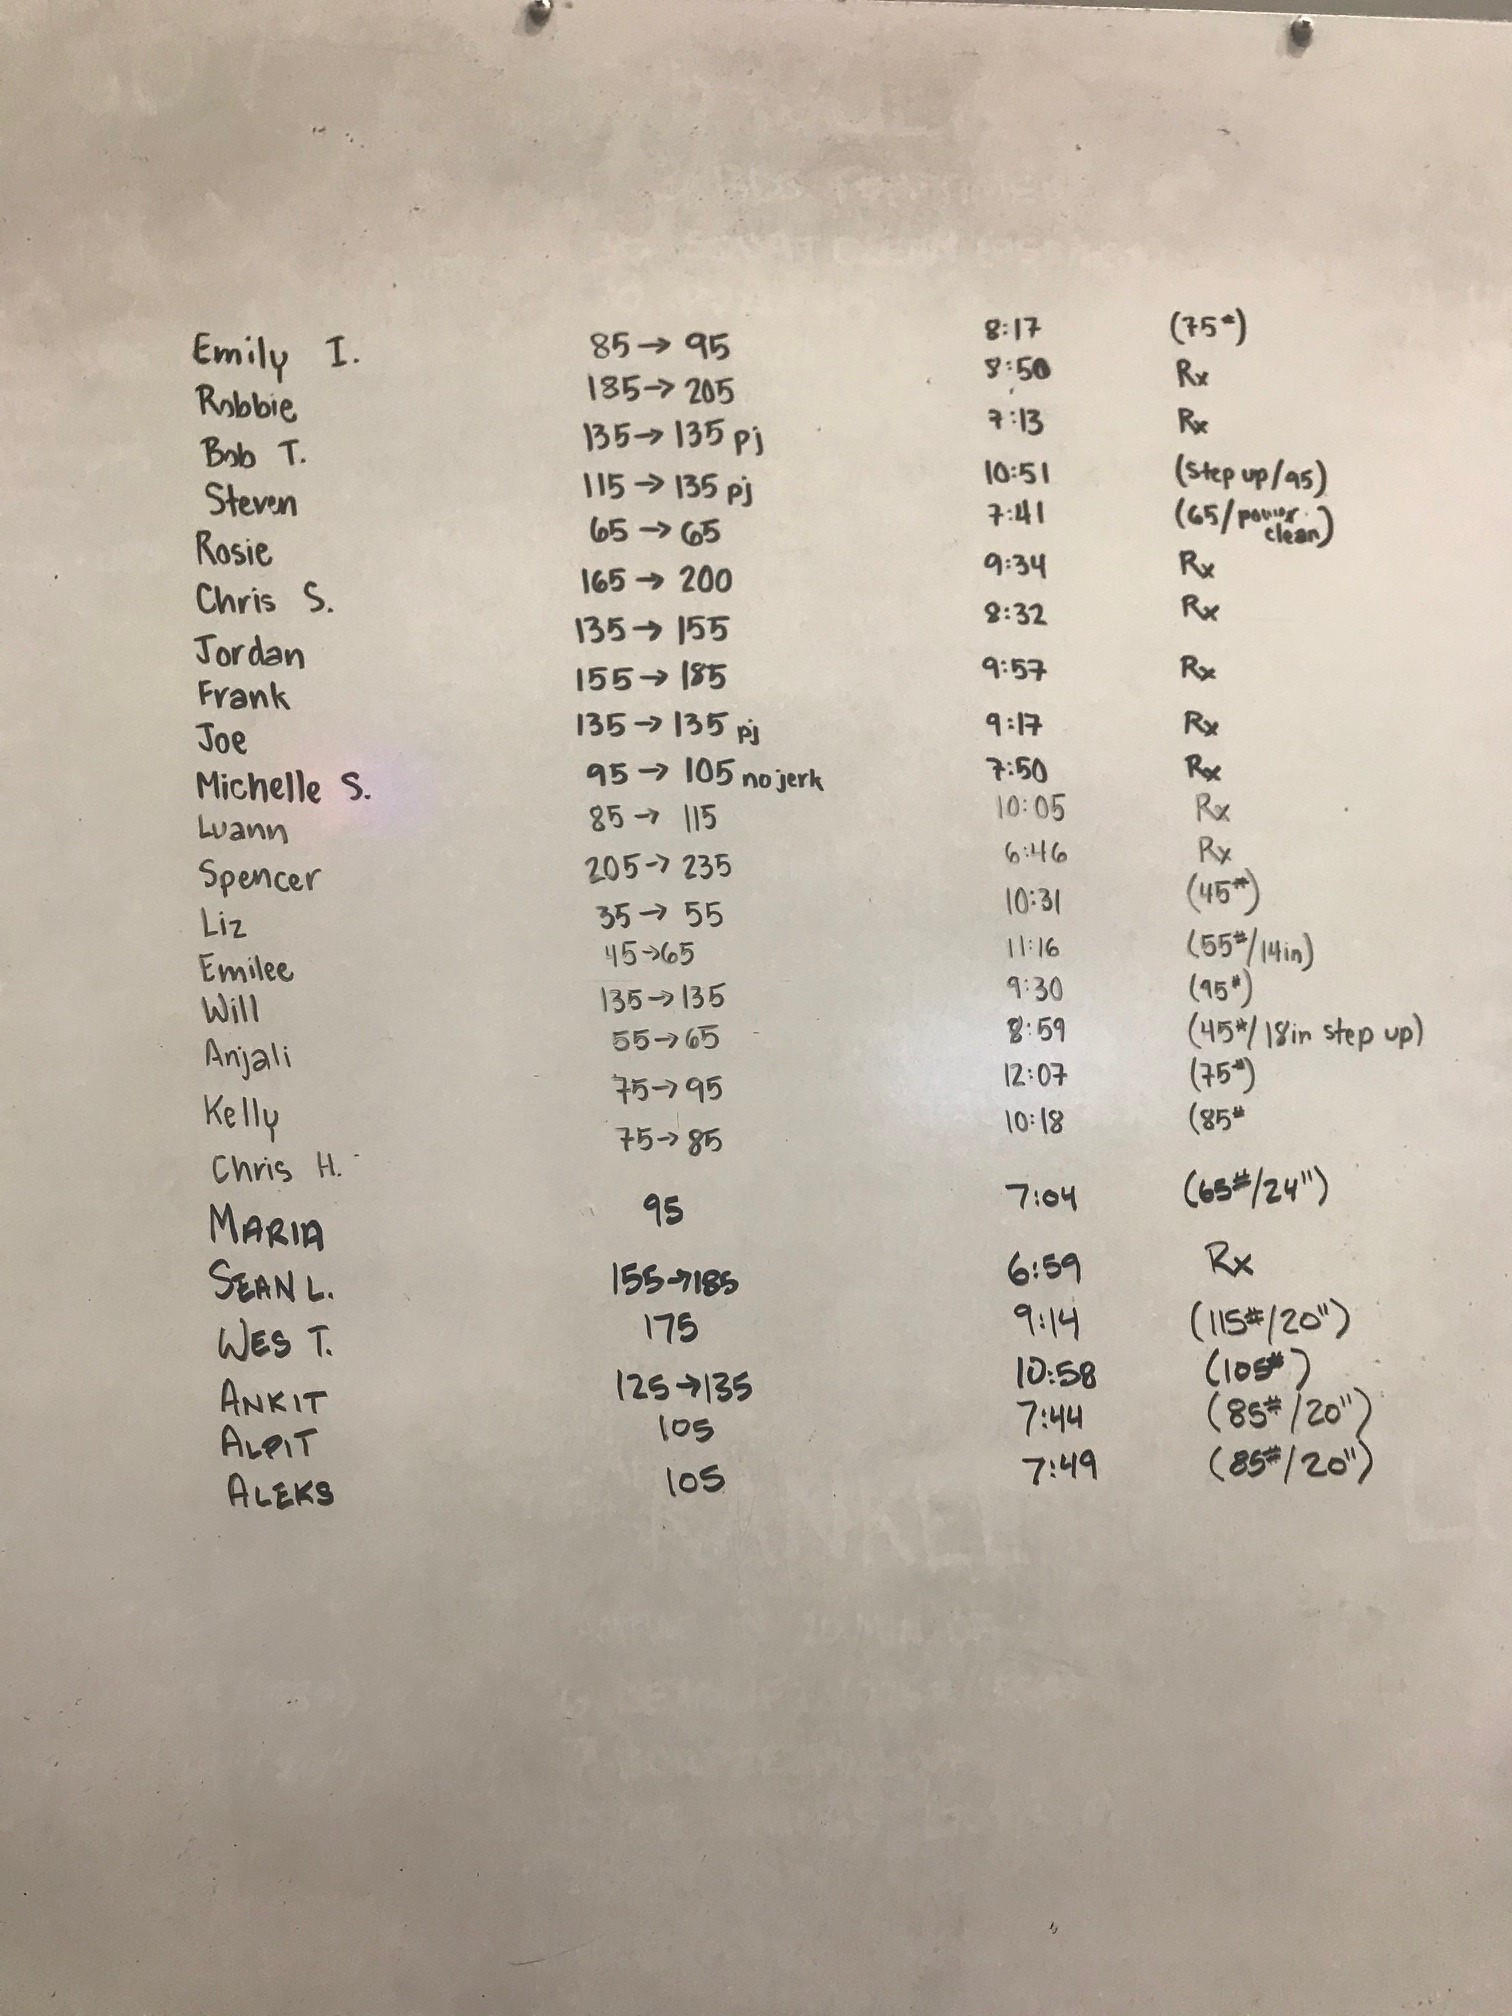 Emily I. 85→95 8:17 (75#)
Robbie 185→205 8:50 Rx
Bob T. 135→135 pj 7:13 Rx
Steven 115→135 pj 10:51 (step up/95)
Rosie 65→65 7:41 (65/power clean)
Chris S. 165→200 9:34 Rx
Jordan 135→155 8:32 Rx
Frank 155→185 9:57 Rx
Joe 135→135 pj 9:17 Rx
Michelle S. 95→105 no jerk 7:50 Rx
Luann 85→115 10:05 Rx
Spencer 205→235 6:46 Rx
Liz 35→55 10:31 (45#)
Emilee 45→65 11:16 (55#/14in)
Will 135→135 9:30 (95#)
Anjali 55→65 8:59 (45#/18in step up)
Kelly 75→95 12:07 (75#)
Chris H. 75→85 10:18 (85#
MARIA 95 7:04 (65#/24")
SEAN L. 155→185 6:59 Rx
WES T. 175 9:14 (115#/20")
ANKIT 125→135 10:58 (105#)
ALPIT 105 7:44 (85#/20")
ALEKS 105 7:49 (85#/20")